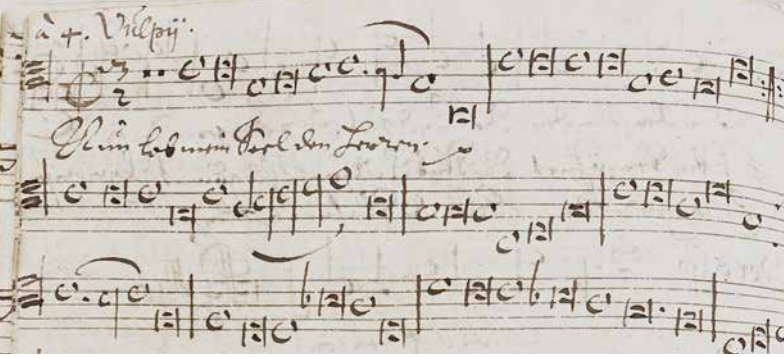 à 4. Vulpij.
3
2
Nun lob mein Seel den Herren.